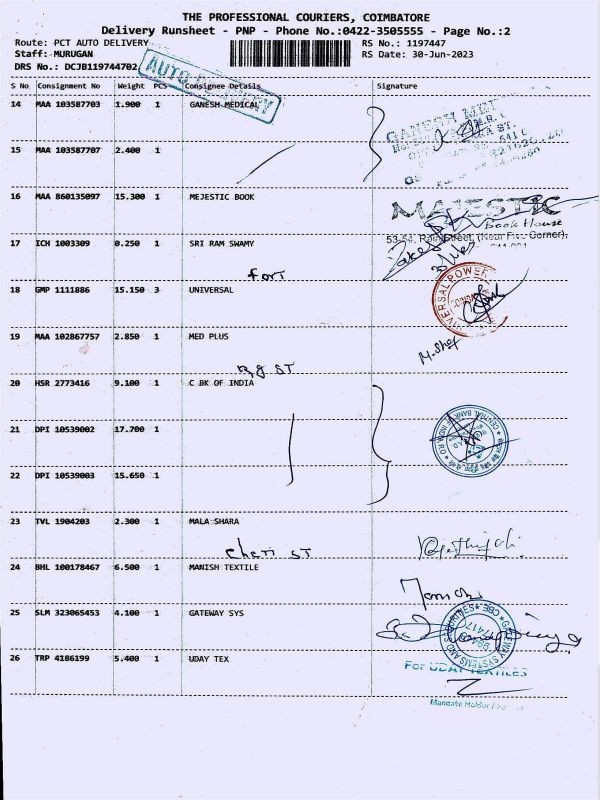 THE PROFESSIONAL COURIERS, COIMBATORE
Delivery Runsheet - PNP - Phone No.:0422-3505555 - Page No.:2
Route: PCT AUTO DELIVERY
RS No.: 1197447
Staff: MURUGAN
RS Date: 30-Jun-2023
DRS No.: DCJB119744702
AUTO DELIVERY
S No Consignment No Weight PCS Consignee Details Signature
14 MAA 103587703 1.900 1 GANESH MEDICAL
GANESH
15 MAA 103587707 2.400 1
16 MAA 860135097 15.300 1 MEJESTIC BOOK
MAJESTIC
Book House
17 ICH 1003309 0.250 1 SRI RAM SWAMY
fort
18 GMP 1111886 15.150 3 UNIVERSAL
UNIVERSAL POWER
19 MAA 102867757 2.850 1 MED PLUS
ST
20 HSR 2773416 9.100 1 C BK OF INDIA
21 DPI 10539002 17.700 1
CENTRAL BANK
22 DPI 10539003 15.650 1
23 TVL 1904203 2.300 1 MALA SHARA
ST
24 BHL 100178467 6.500 1 MANISH TEXTILE
25 SLM 323065453 4.100 1 GATEWAY SYS
GATEWAY SYSTEMS AND SERVICES CBE
26 TRP 4186199 5.400 1 UDAY TEX
For UDAY TEXTILES
Mandate Holder